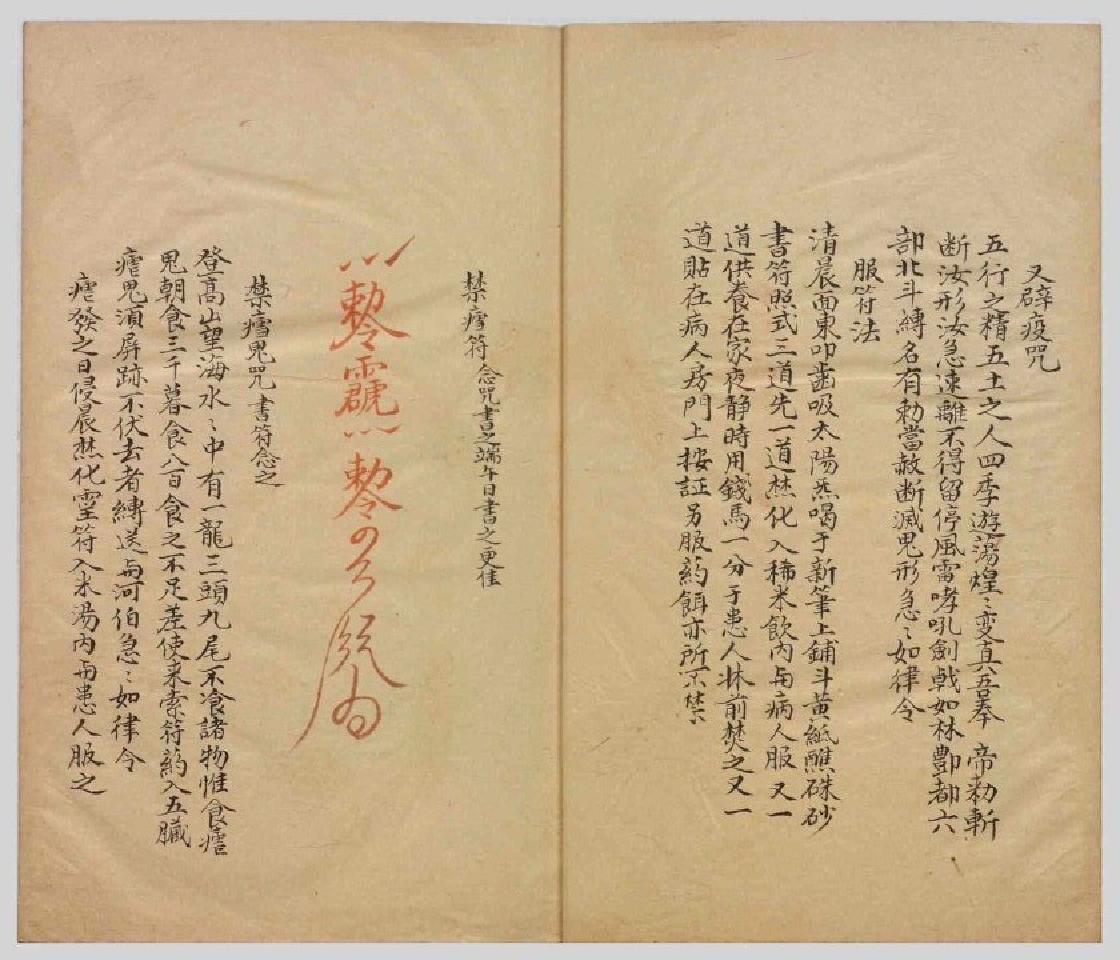 又辟疫咒
五行之精五土之人四季遊湯煌〻变真吾奉 帝勅斬
断汝形汝急速離不得留停風雷哮吼劍戟如林酆都六
部北斗縛名有勅當赦断滅鬼形急〻如律令
服符法
清晨面東叩齒吸太陽炁喝于新筆上鋪斗黄紙蘸硃砂
書符照式三道先一道焚化入稀米飲內与病人服又一
道供養在家夜静時用錢馬一分于患人牀前焚之又一
道貼在病人房門上按証另服葯餌亦所不禁
禁瘧符念咒書之端午日書之更佳
禁瘧鬼咒書符念之
登高山望海水〻中有一龍三頭九尾不飡諸物惟食瘧
鬼朝食三千暮食八百食之不足差使来索符葯入五臟
瘧鬼須屏跡不伏去者縛送与河伯急〻如律令
瘧發之日侵晨焚化靈符入米湯內与患人服之